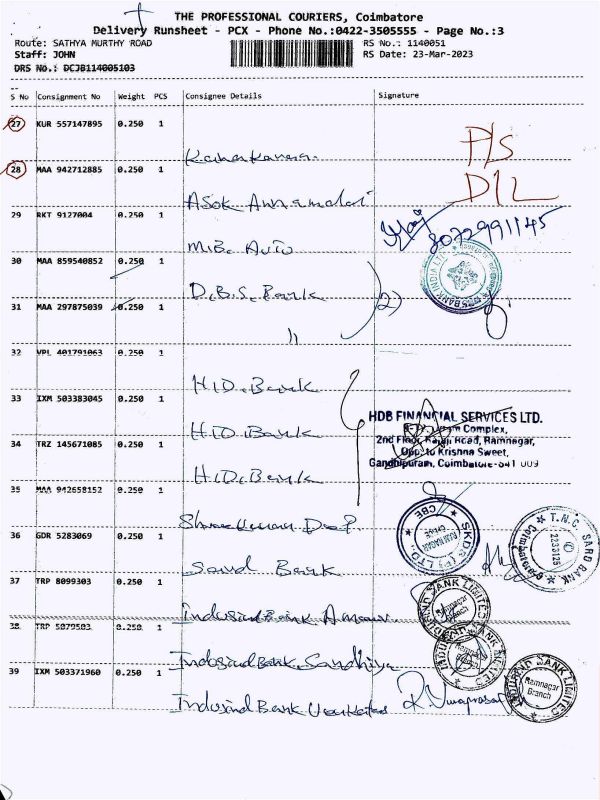 THE PROFESSIONAL COURIERS, Coimbatore
Delivery Runsheet - PCX - Phone No.:0422-3505555 - Page No.:3
Route: SATHYA MURTHY ROAD RS No.: 1140051
Staff: JOHN RS Date: 23-Mar-2023
DRS No.: DCJB114005103
S No Consignment No Weight PCS Consignee Details Signature
27 KUR 557147895 0.250 1
P/S
28 MAA 942712885 0.250 1
D/L
Asok
29 RKT 9127004 0.250 1
8072991145
M.B. Auto
30 MAA 859540852 0.250 1
D.B.S. Bank
2)
31 MAA 297875039 0.250 1
"
32 VPL 401791063 0.250 1
H.D. Bank
33 IXM 503383045 0.250 1
HDB FINANCIAL SERVICES LTD.
Complex,
H.D. Bank
2nd Floor, Rajaji Road, Ramnagar,
34 TRZ 145671085 0.250 1
Opp. to Krishna Sweet,
Gandhipuram, Coimbatore-641 009
H.D. Bank
35 MAA 942658152 0.250 1
36 GDR 5283069 0.250 1
Bank
37 TRP 8099303 0.250 1
Indusind Bank
INDUSIND BANK LIMITED
Ramnagar
Branch
38 TRP 5079503 0.250 1
Indusind Bank Sandhiya
INDUSIND BANK LIMITED
Ramnagar
Branch
39 IXM 503371960 0.250 1
Indusind Bank
INDUSIND BANK LIMITED
Ramnagar
Branch